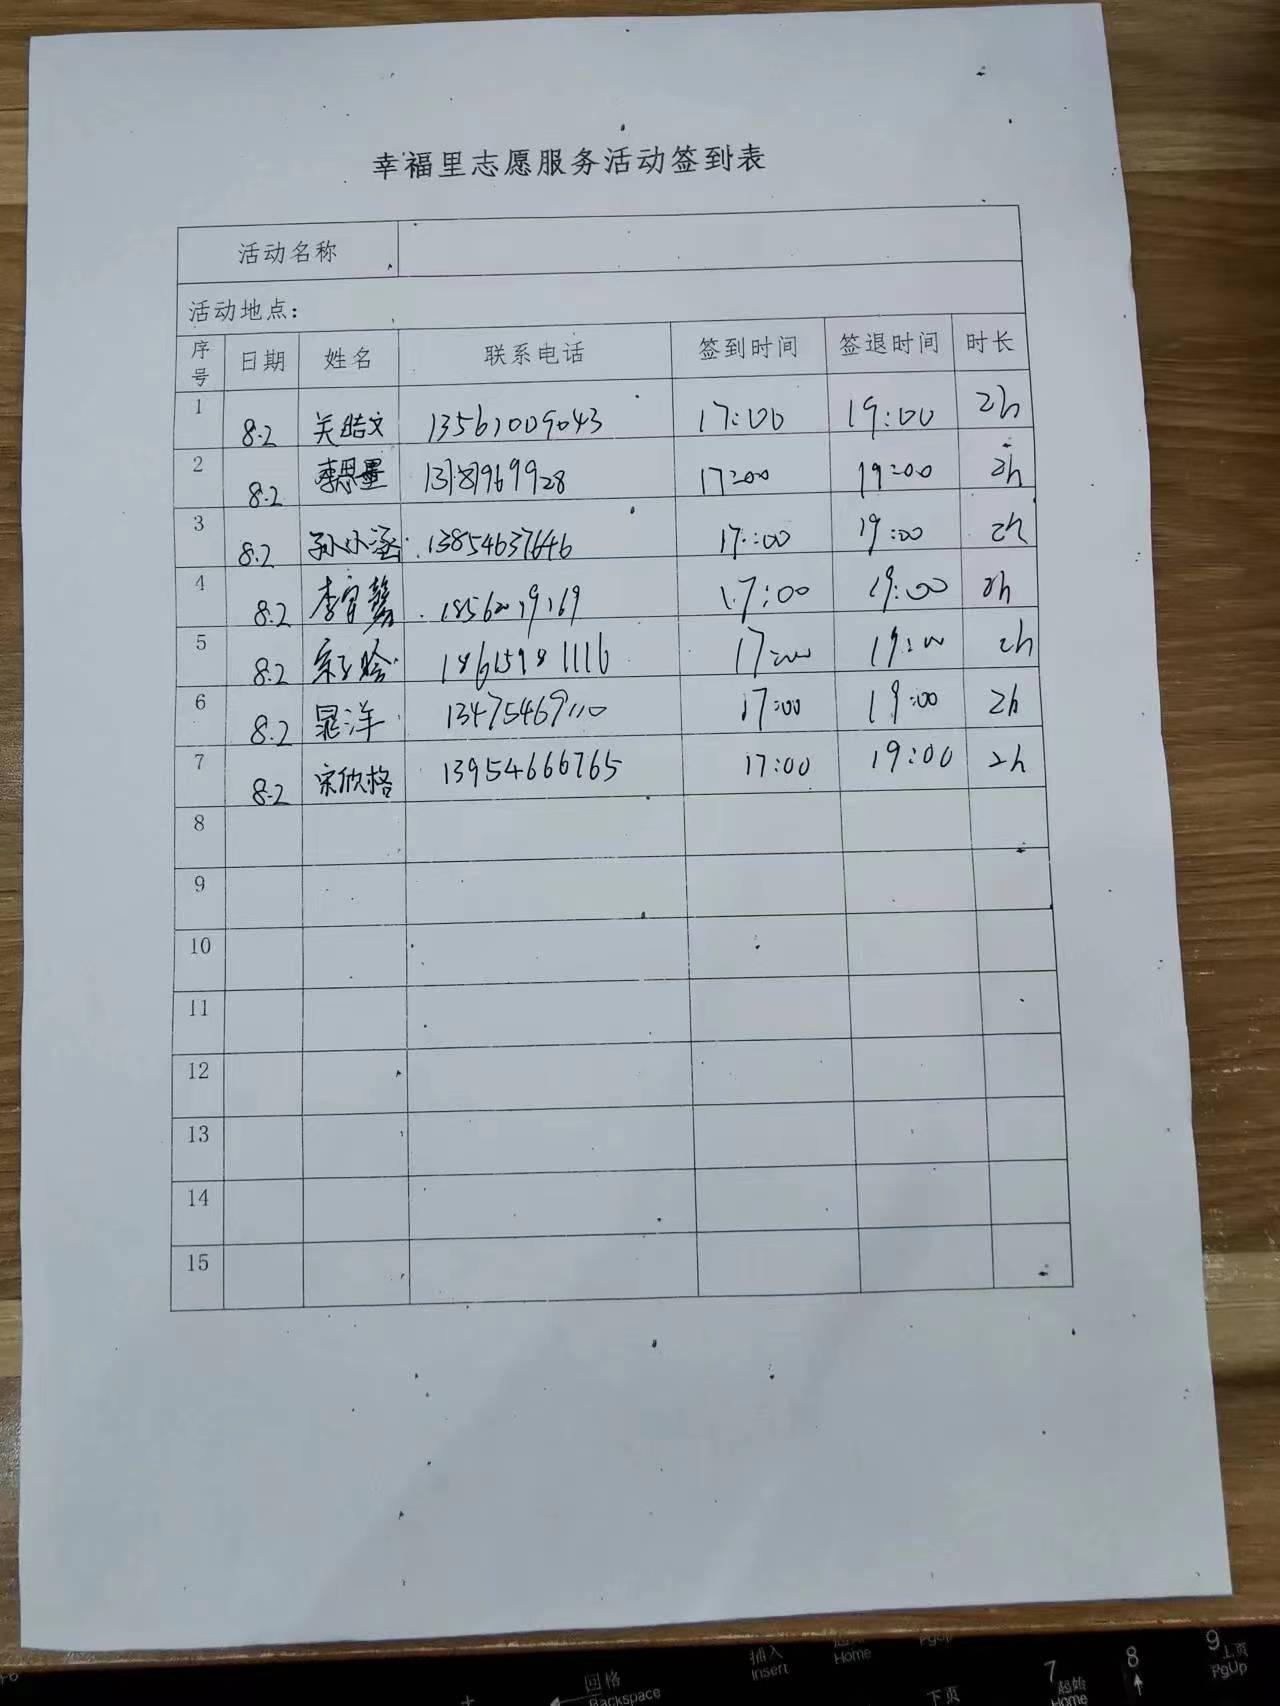 幸福里志愿服务活动签到表
活动名称
活动地点：
序号 日期 姓名 联系电话 签到时间 签退时间 时长
1 8.2 关皓文 13561009043 17:00 19:00 2h
2 8.2 李思墨 17:00 19:00 2h
3 8.2 孙小涵 13854637646 17:00 19:00 2h
4 8.2 李宜 17:00 19:00 2h
5 8.2 17:00 19:00 2h
6 8.2 晁洋 13475469110 17:00 19:00 2h
7 8.2 宋欣格 13954666765 17:00 19:00 2h
8
9
10
11
12
13
14
15
插入 Insert
Home
PgUp
回格 Backspace
下页
7 起始 Home
8 ↑
9 上页 PgUp